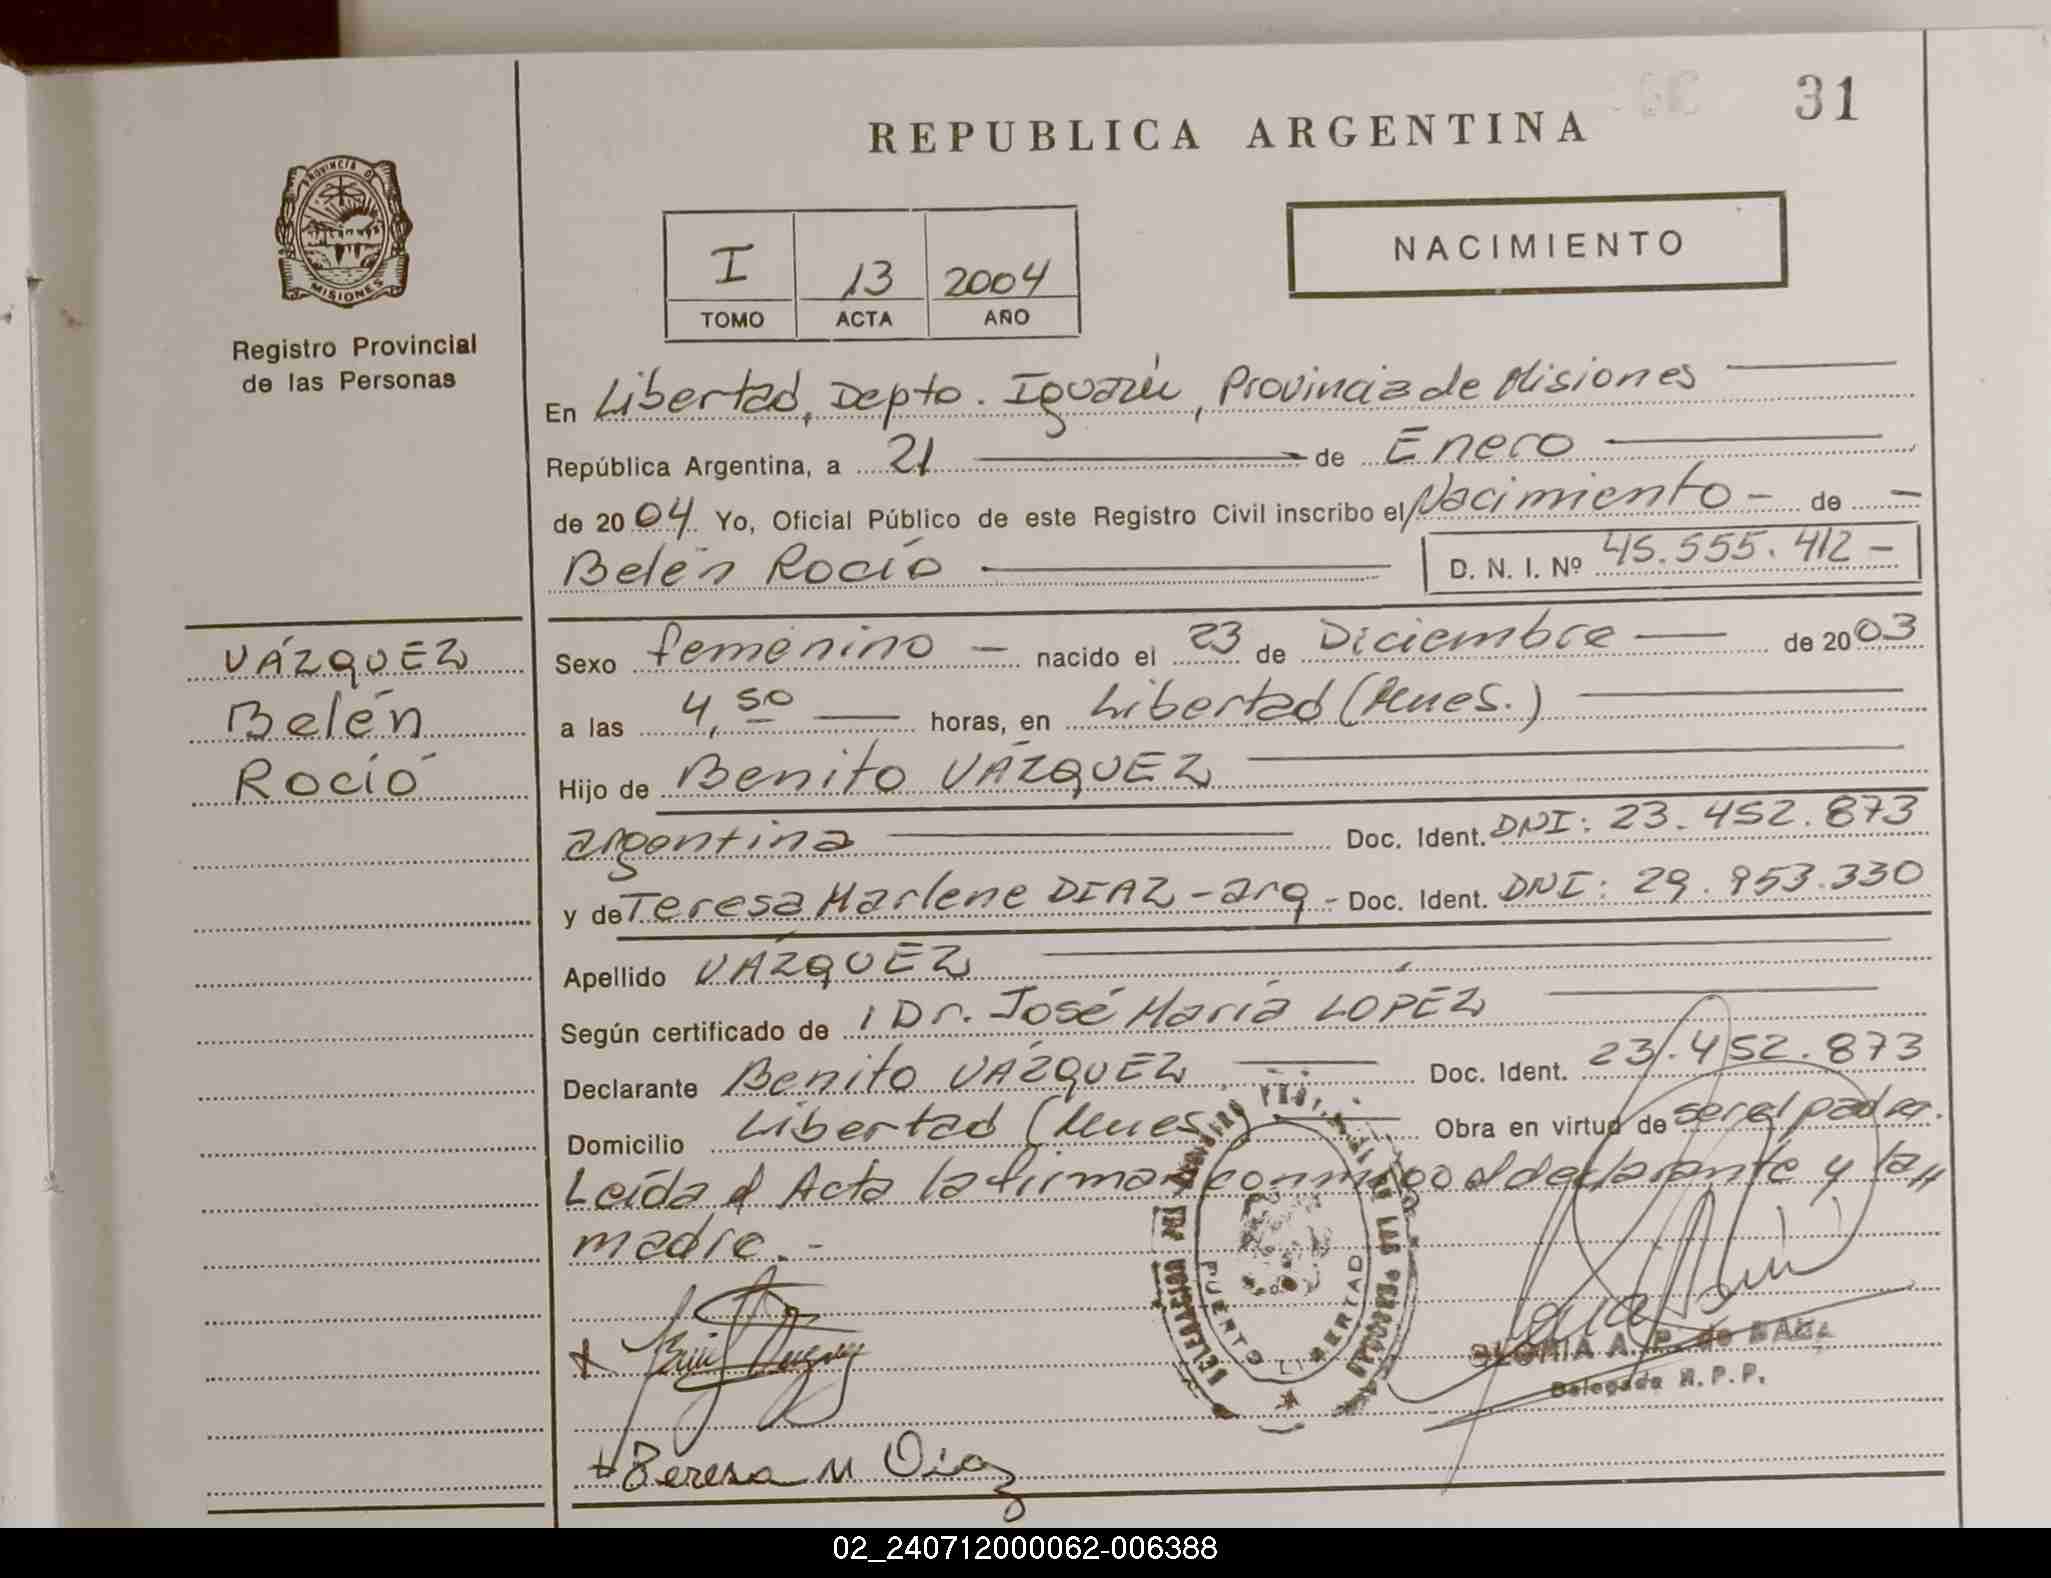 31
REPUBLICA ARGENTINA
PROVINCIA DE
MISIONES
NACIMIENTO
I 13 2004
TOMO ACTA AÑO
Registro Provincial
de las Personas
En Libertad, Depto. Iguazú, Provincia de Misiones
República Argentina, a 21 de Enero
de 2004 Yo, Oficial Público de este Registro Civil inscribo el Nacimiento - de -
Belén Rocío D. N. I. Nº 45.555.412 -
VÁZQUEZ
Belén
Rocío
Sexo femenino - nacido el 23 de Diciembre de 2003
a las 4,50 horas, en Libertad (Mnes.)
Hijo de Benito VÁZQUEZ
argentina Doc. Ident. DNI: 23.452.873
y de Teresa Marlene DIAZ - arg - Doc. Ident. DNI: 29.953.330
Apellido VÁZQUEZ
Según certificado de Dr. José María LOPEZ
Declarante Benito VÁZQUEZ Doc. Ident. 23.452.873
Domicilio Libertad (Mnes) Obra en virtud de ser el padre.
Leída el Acta la firman conmigo el declarante y la
madre.-
PUERTO LIBERTAD
GLORIA A. P. de
Delegada R. P. P.
Teresa M Diaz
02_240712000062-006388